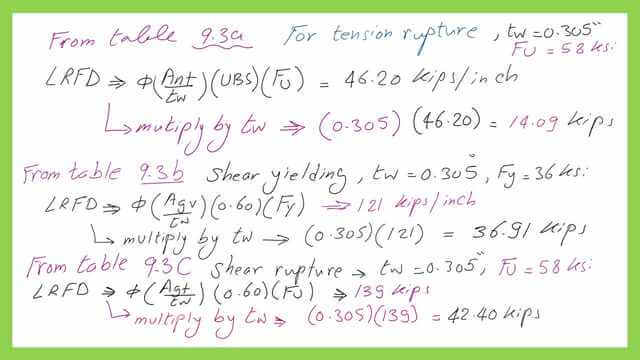 From table 9.3a For tension rupture, tw=0.305"
FU = 58 ksi
LRFD ⇒ Φ(Ant/tw)(UBS)(FU) = 46.20 kips/inch
↳mutiply by tw ⇒ (0.305)(46.20) = 14.09 kips
From table 9.3b Shear yielding, tw=0.305", Fy=36 ksi
LRFD ⇒ Φ(Agv/tw)(0.60)(Fy) ⇒ 121 kips/inch
↳multiply by tw → (0.305)(121) = 36.91 kips
From table 9.3C Shear rupture → tw=0.305", FU=58 ksi
LRFD ⇒ Φ(Agt/tw)(0.60)(FU) ⇒ 139 kips
↳multiply by tw ⇒ (0.305)(139) = 42.40 kips